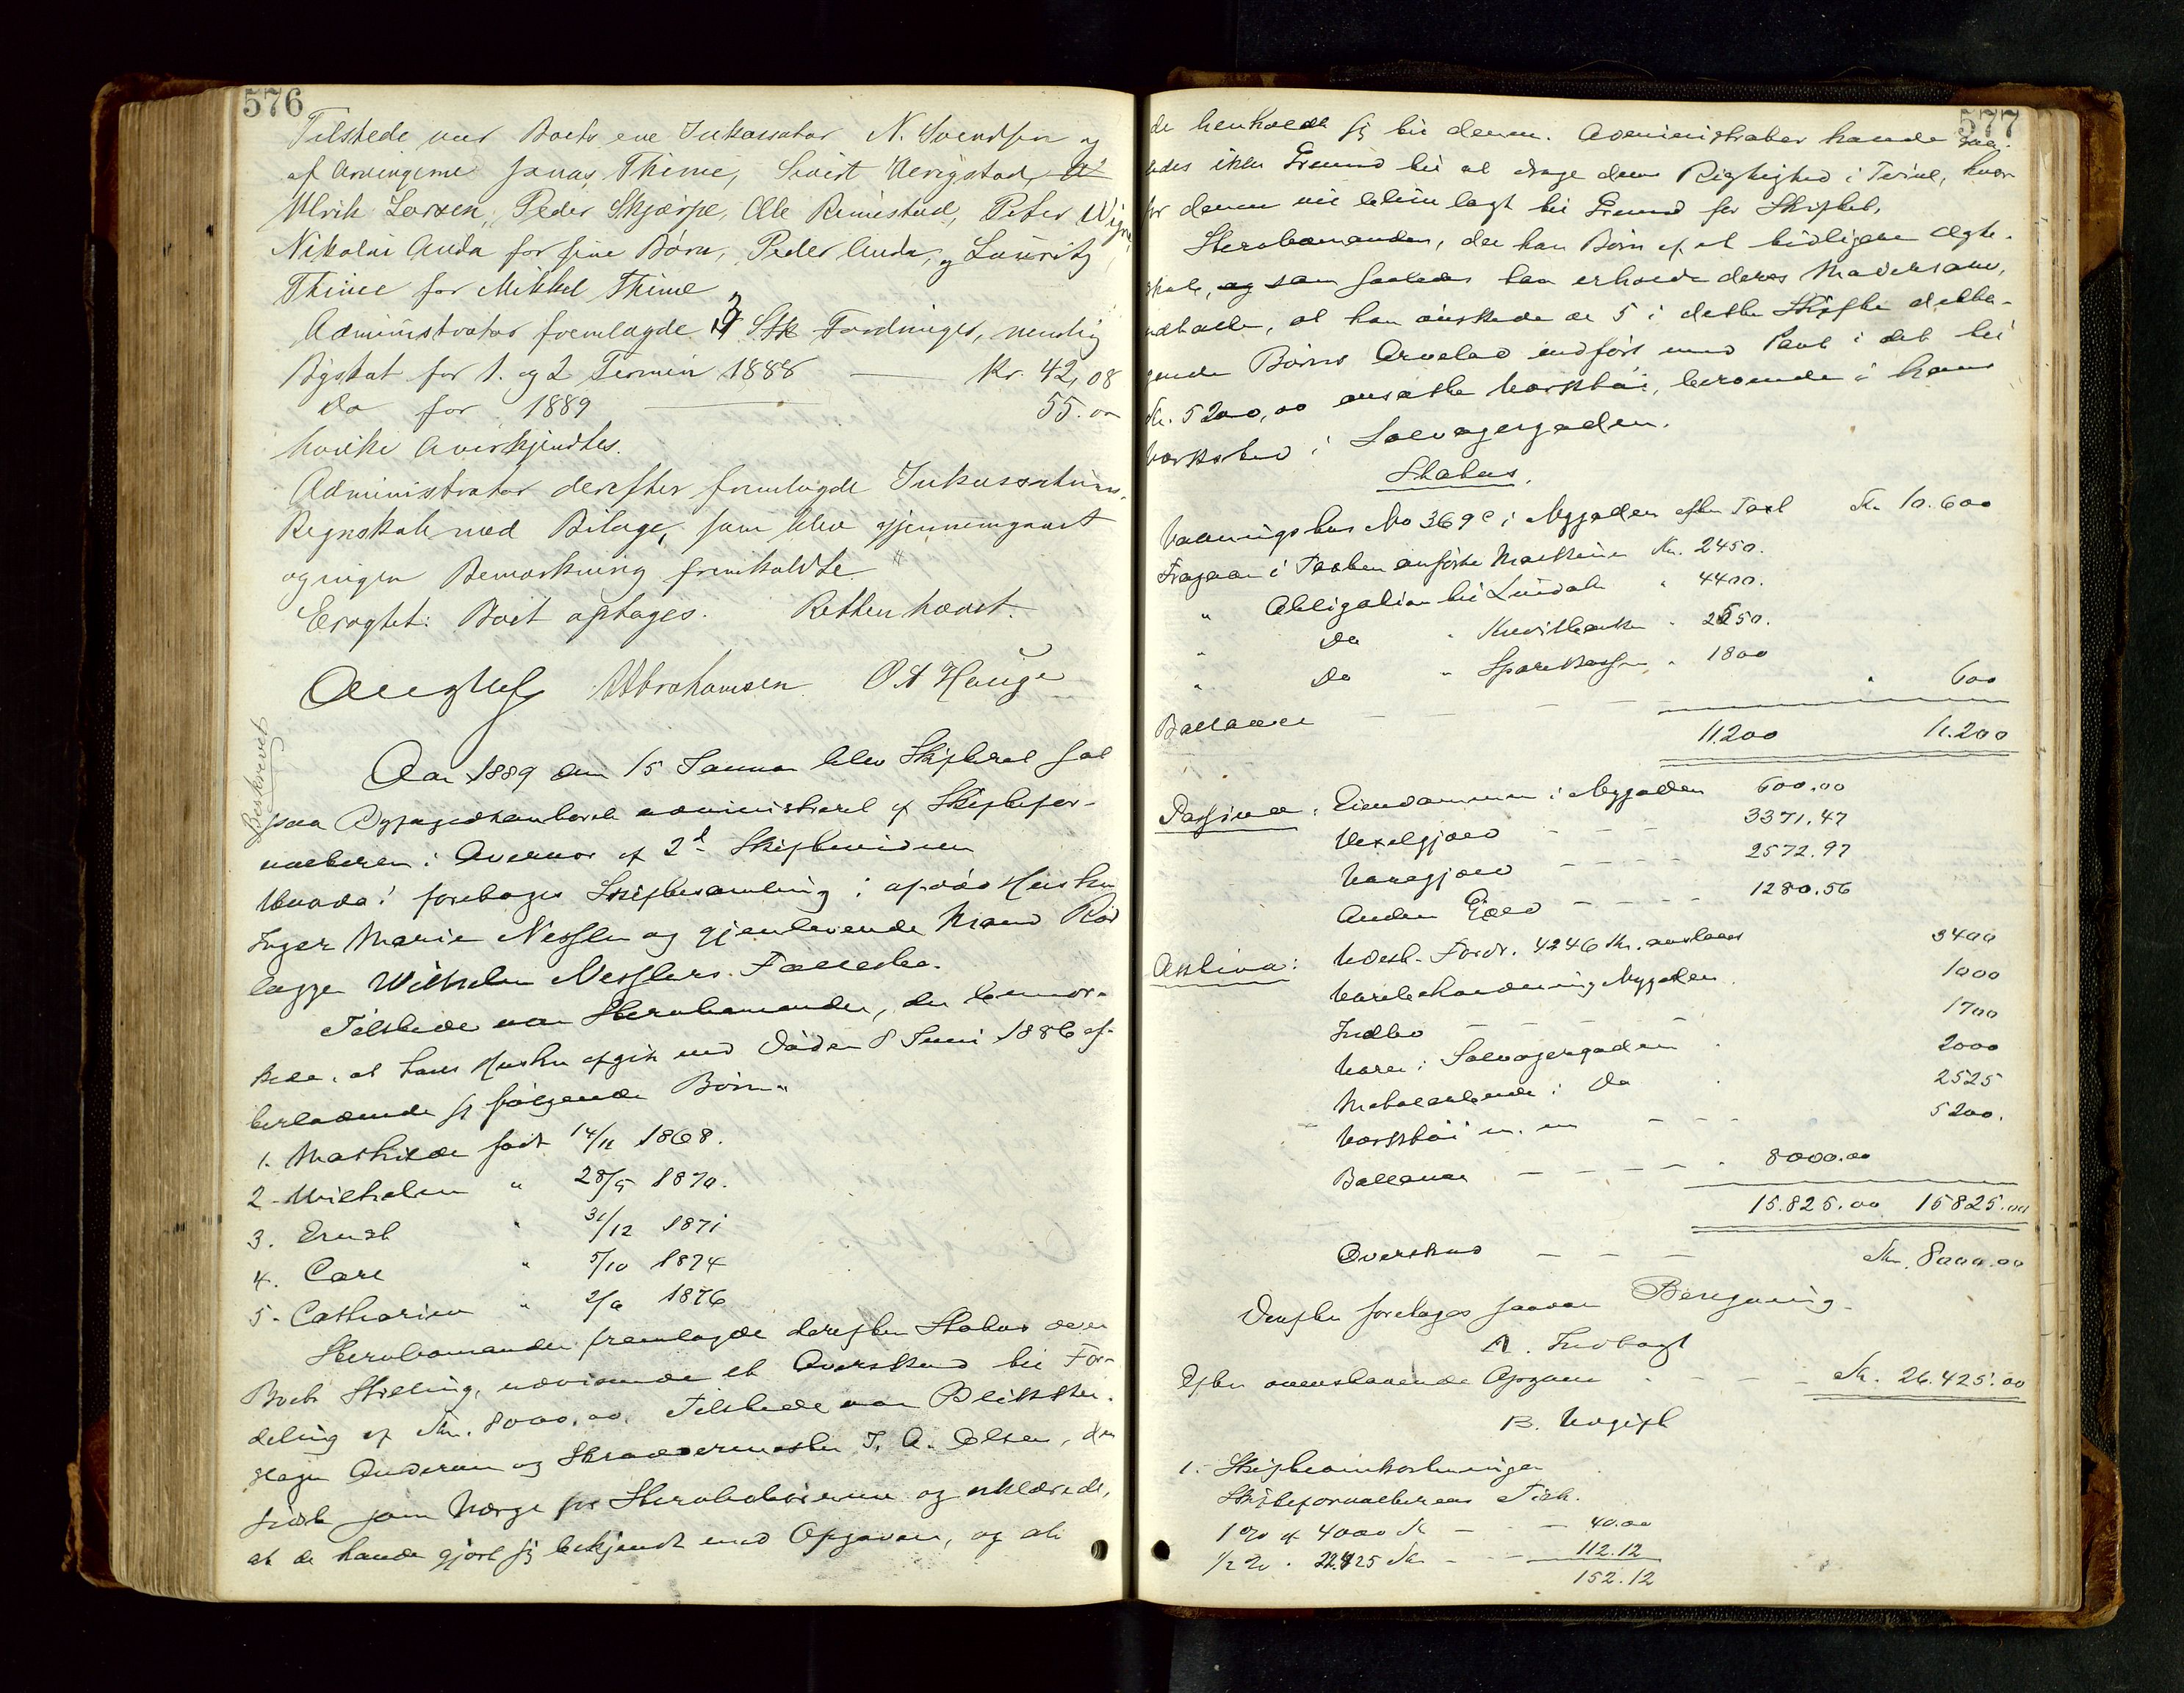 576
Tilstede var Boets ene Inkassator N. Svendsen og
af Arvingerne Jonas Thime, Sivert Nerigstad,
Ulrik Larsen, Peder Skjærpe, Ole Rimestad, Peter Wigre,
Nikolai Anda for sine Børn, Peder Anda, og Lauritz
Thime for Mikkel Thime
Administrator fremlagde 3 Stk Fordringer, nemlig
Bÿskat for 1. og 2 Termin 1888 — Kr. 42,08
do for 1889 — 55.00
hvilke Averkjendtes.
Administrator derefter fremlagde Inkassations
Regnskab med Bilage, som blev gjennemgaaet
og ingen Bemærkning fremkaldte
Eragtet: Boet optages. Retten hævet.
Abrahamsen O A Hauge
Beskrevet
Aar 1889 den 15 Januar blev Skifteret sat
paa Byfogedkontoret administreret af Skiftefor-
valteren i Overvær af 2de Skiftevidner
Hvorda: foretoges Skiftesamling i afdøde Hustru
Inger Marie Nessler og gjenlevende Mand Rør
lægger Wilhelm Nesslers Fællesbo.
Tilstede var Stervbomanden, der bemær-
kede, at hans Hustru afgik ved Døden 8 Juni 1886 ef-
terladende sig følgende Børn:
1. Mathilde født 14/11 1868.
2. Wilhelm " 28/5 1870.
3. Ernst " 31/12 1871
4. Carl " 5/10 1874
5. Catharine " 2/6 1876
Stervbomanden fremlagde derefter Status over
Boets Stilling, udvisende et Overskud til For-
deling af Kr. 8000,00. Tilstede var Blikken-
slager Andersen og Skræddermester T. A. Olsen, der
som Værge for Stervbobørnene og erklærede,
at de havde gjort sig bekjendt med Opgaven, og at
577
de henholdt sig til denne. Administrator havde saa-
ledes ikke Grund til at drage dens Rigtighed i Tvivl, hvor
for denne vil blive lagt til Grund for Skiftet.
Stervbomanden, der har Børn af et tidligere Ægte-
skab, som saaledes har erholdt deres Mødrenearv,
udtalte, at han ønskede de 5 i dette Skifte delta-
gende Børns Arvelod indført med Pant i det til
Kr. 5200,00 ansatte Værktøi, beroende i hans
Værksted i Salvagergaden.
Status.
Vaaningshus No 369c i Nygaden efter Taxt Kr. 10.600
Fragaar i Taxten anførte Maskiner Kr. 2450.
" Obligation til Lindal " 4400.
" Do " Kreditbanken " 2550.
" Do " Sparekassen " 1800
Ballance — — — " 600
11.200 11.200
Passiva: Eiendommen i Nygaden 600.00
Vexelgjæld — — — 3371.47
Varegjæld — — — 2572.97
Anden Gjæld — — — 1280.56
Aktiva: Udest. Fordr. 4246 Kr. anslaaes 3400
Varebeholdning Nygaden 1000
Indbo — — — 1700
Varer i Salvagergaden 2000
Materialende i Do 2525
Værktøi m. m — — — 5200.
Ballance — — — 8000.00
15.825.00 15825.00
Overskud — — — Kr. 8000.00
Derefter foretoges saadan Beregning.
A. Indtægt
Efter ovenstaaende Opgave — — Kr. 26.425.00
B. Udgift
1. Skifteomkostninger
Skifteforvalterens Tilk.
1% af 4000 Kr — — 40.00
1/2 % " 22.425 Kr — — 112.12
152.12